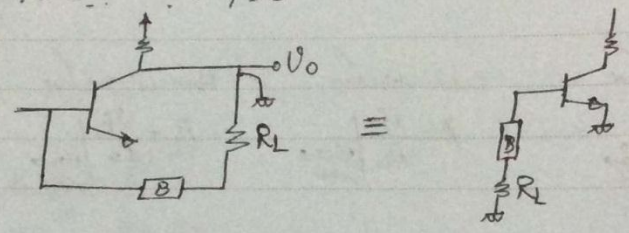 V₀
R_L
≡
B
B
R_L